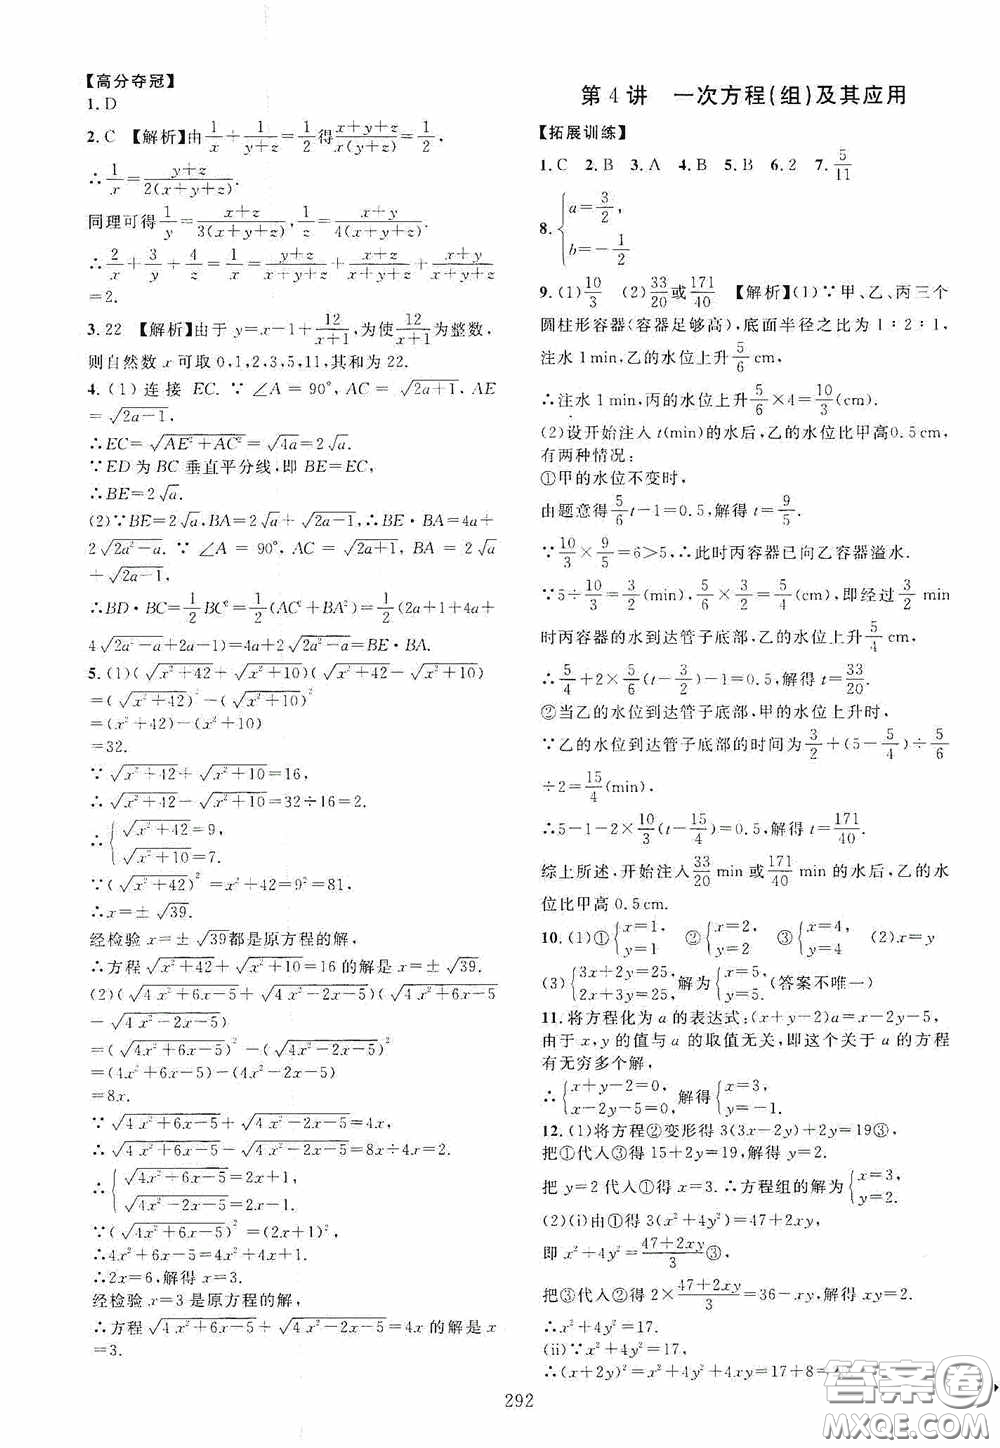 【高分夺冠】
1. D
2. C 【解析】由 1/x + 1/(y+z) = 1/2 得 (x+y+z)/(x(y+z)) = 1/2,
∴ 1/x = (y+z)/(2(x+y+z)).
同理可得 1/y = (x+z)/(3(x+y+z)), 1/z = (x+y)/(4(x+y+z)).
∴ 2/x + 3/y + 4/z = (y+z)/(x+y+z) + (x+z)/(x+y+z) + (x+y)/(x+y+z)
=2.
3. 22 【解析】由于 y=x-1+12/(x+1),为使12/(x+1)为整数,
则自然数 x 可取 0,1,2,3,5,11,其和为 22.
4. (1) 连接 EC. ∵ ∠A = 90°, AC = √(2a+1), AE
= √(2a-1),
∴EC=√(AE²+AC²)=√(4a)=2√a.
∵ED 为 BC 垂直平分线,即 BE=EC,
∴BE=2√a.
(2)∵BE=2√a,BA=2√a+√(2a-1),∴BE·BA=4a+
2√(2a²-a). ∵ ∠A = 90°, AC = √(2a+1), BA = 2√a
+√(2a-1),
∴BD·BC=1/2 BC²=1/2(AC²+BA²)=1/2(2a+1+4a+
4√(2a²-a)+2a-1)=4a+2√(2a²-a)=BE·BA.
5. (1)(√(x²+42)+√(x²+10))(√(x²+42)-√(x²+10))
=(√(x²+42))²-(√(x²+10))²
=(x²+42)-(x²+10)
=32.
∵√(x²+42)+√(x²+10)=16,
∴√(x²+42)-√(x²+10)=32÷16=2.
∴{√(x²+42)=9,
√(x²+10)=7.
∵(√(x²+42))²=x²+42=9²=81.
∴x=±√39.
经检验 x=±√39都是原方程的解,
∴方程√(x²+42)+√(x²+10)=16 的解是 x=±√39.
(2)(√(4x²+6x-5)+√(4x²-2x-5))(√(4x²+6x-5)
-√(4x²-2x-5))
=(√(4x²+6x-5))²-(√(4x²-2x-5))²
=(4x²+6x-5)-(4x²-2x-5)
=8x.
∵√(4x²+6x-5)+√(4x²-2x-5)=4x,
∴√(4x²+6x-5)-√(4x²-2x-5)=8x÷4x=2.
∴{√(4x²+6x-5)=2x+1,
√(4x²-2x-5)=2x-1.
∵(√(4x²+6x-5))²=(2x+1)²,
∴4x²+6x-5=4x²+4x+1.
∴2x=6,解得 x=3.
经检验 x=3 是原方程的解,
∴方程√(4x²+6x-5)+√(4x²-2x-5)=4x 的解是 x
=3.
第4讲 一次方程(组)及其应用
【拓展训练】
1. C 2. B 3. A 4. B 5. B 6. 2 7. 5/11
8. {a=3/2,
b=-1/2
9. (1)10/3 (2)33/20或171/40 【解析】(1)∵甲、乙、丙三个
圆柱形容器(容器足够高),底面半径之比为 1:2:1,
注水 1 min,乙的水位上升5/6 cm,
∴注水 1 min,丙的水位上升5/6×4=10/3(cm).
(2)设开始注入 t(min)的水后,乙的水位比甲高0.5 cm,
有两种情况:
①甲的水位不变时,
由题意得5/6 t-1=0.5,解得 t=9/5.
∵10/3×9/5=6>5,∴此时丙容器已向乙容器溢水.
∵5÷10/3=3/2(min),5/6×3/2=5/4(cm),即经过3/2 min
时丙容器的水到达管子底部,乙的水位上升5/4 cm,
∴5/4+2×5/6(t-3/2)-1=0.5,解得 t=33/20.
②当乙的水位到达管子底部,甲的水位上升时,
∵乙的水位到达管子底部的时间为3/2+(5-5/4)÷5/6
÷2=15/4(min),
∴5-1-2×10/3(t-15/4)=0.5,解得 t=171/40.
综上所述,开始注入33/20 min 或171/40 min 的水后,乙的水
位比甲高 0.5 cm.
10. (1)①{x=1, y=1 ②{x=2, y=2 ③{x=4, y=4 (2)x=y
(3){3x+2y=25, 2x+3y=25, 解为{x=5, y=5 (答案不唯一)
11. 将方程化为 a 的表达式:(x+y-2)a=x-2y-5,
由于 x,y 的值与 a 的取值无关,即这个关于 a 的方程
有无穷多个解,
∴{x+y-2=0, x-2y-5=0, 解得{x=3, y=-1.
12. (1)将方程②变形得 3(3x-2y)+2y=19③,
把①代入③得 15+2y=19,解得 y=2,
把 y=2 代入①得 x=3. ∴方程组的解为{x=3, y=2.
(2)(i)由①得 3(x²+4y²)=47+2xy,
即 x²+4y²=(47+2xy)/3③,
把③代入②得 2×(47+2xy)/3=36-xy,解得 xy=2.
∴x²+4y²=17.
(ii)∵x²+4y²=17,
∴(x+2y)²=x²+4y²+4xy=17+8=
292
答案圈
MXQE.COM